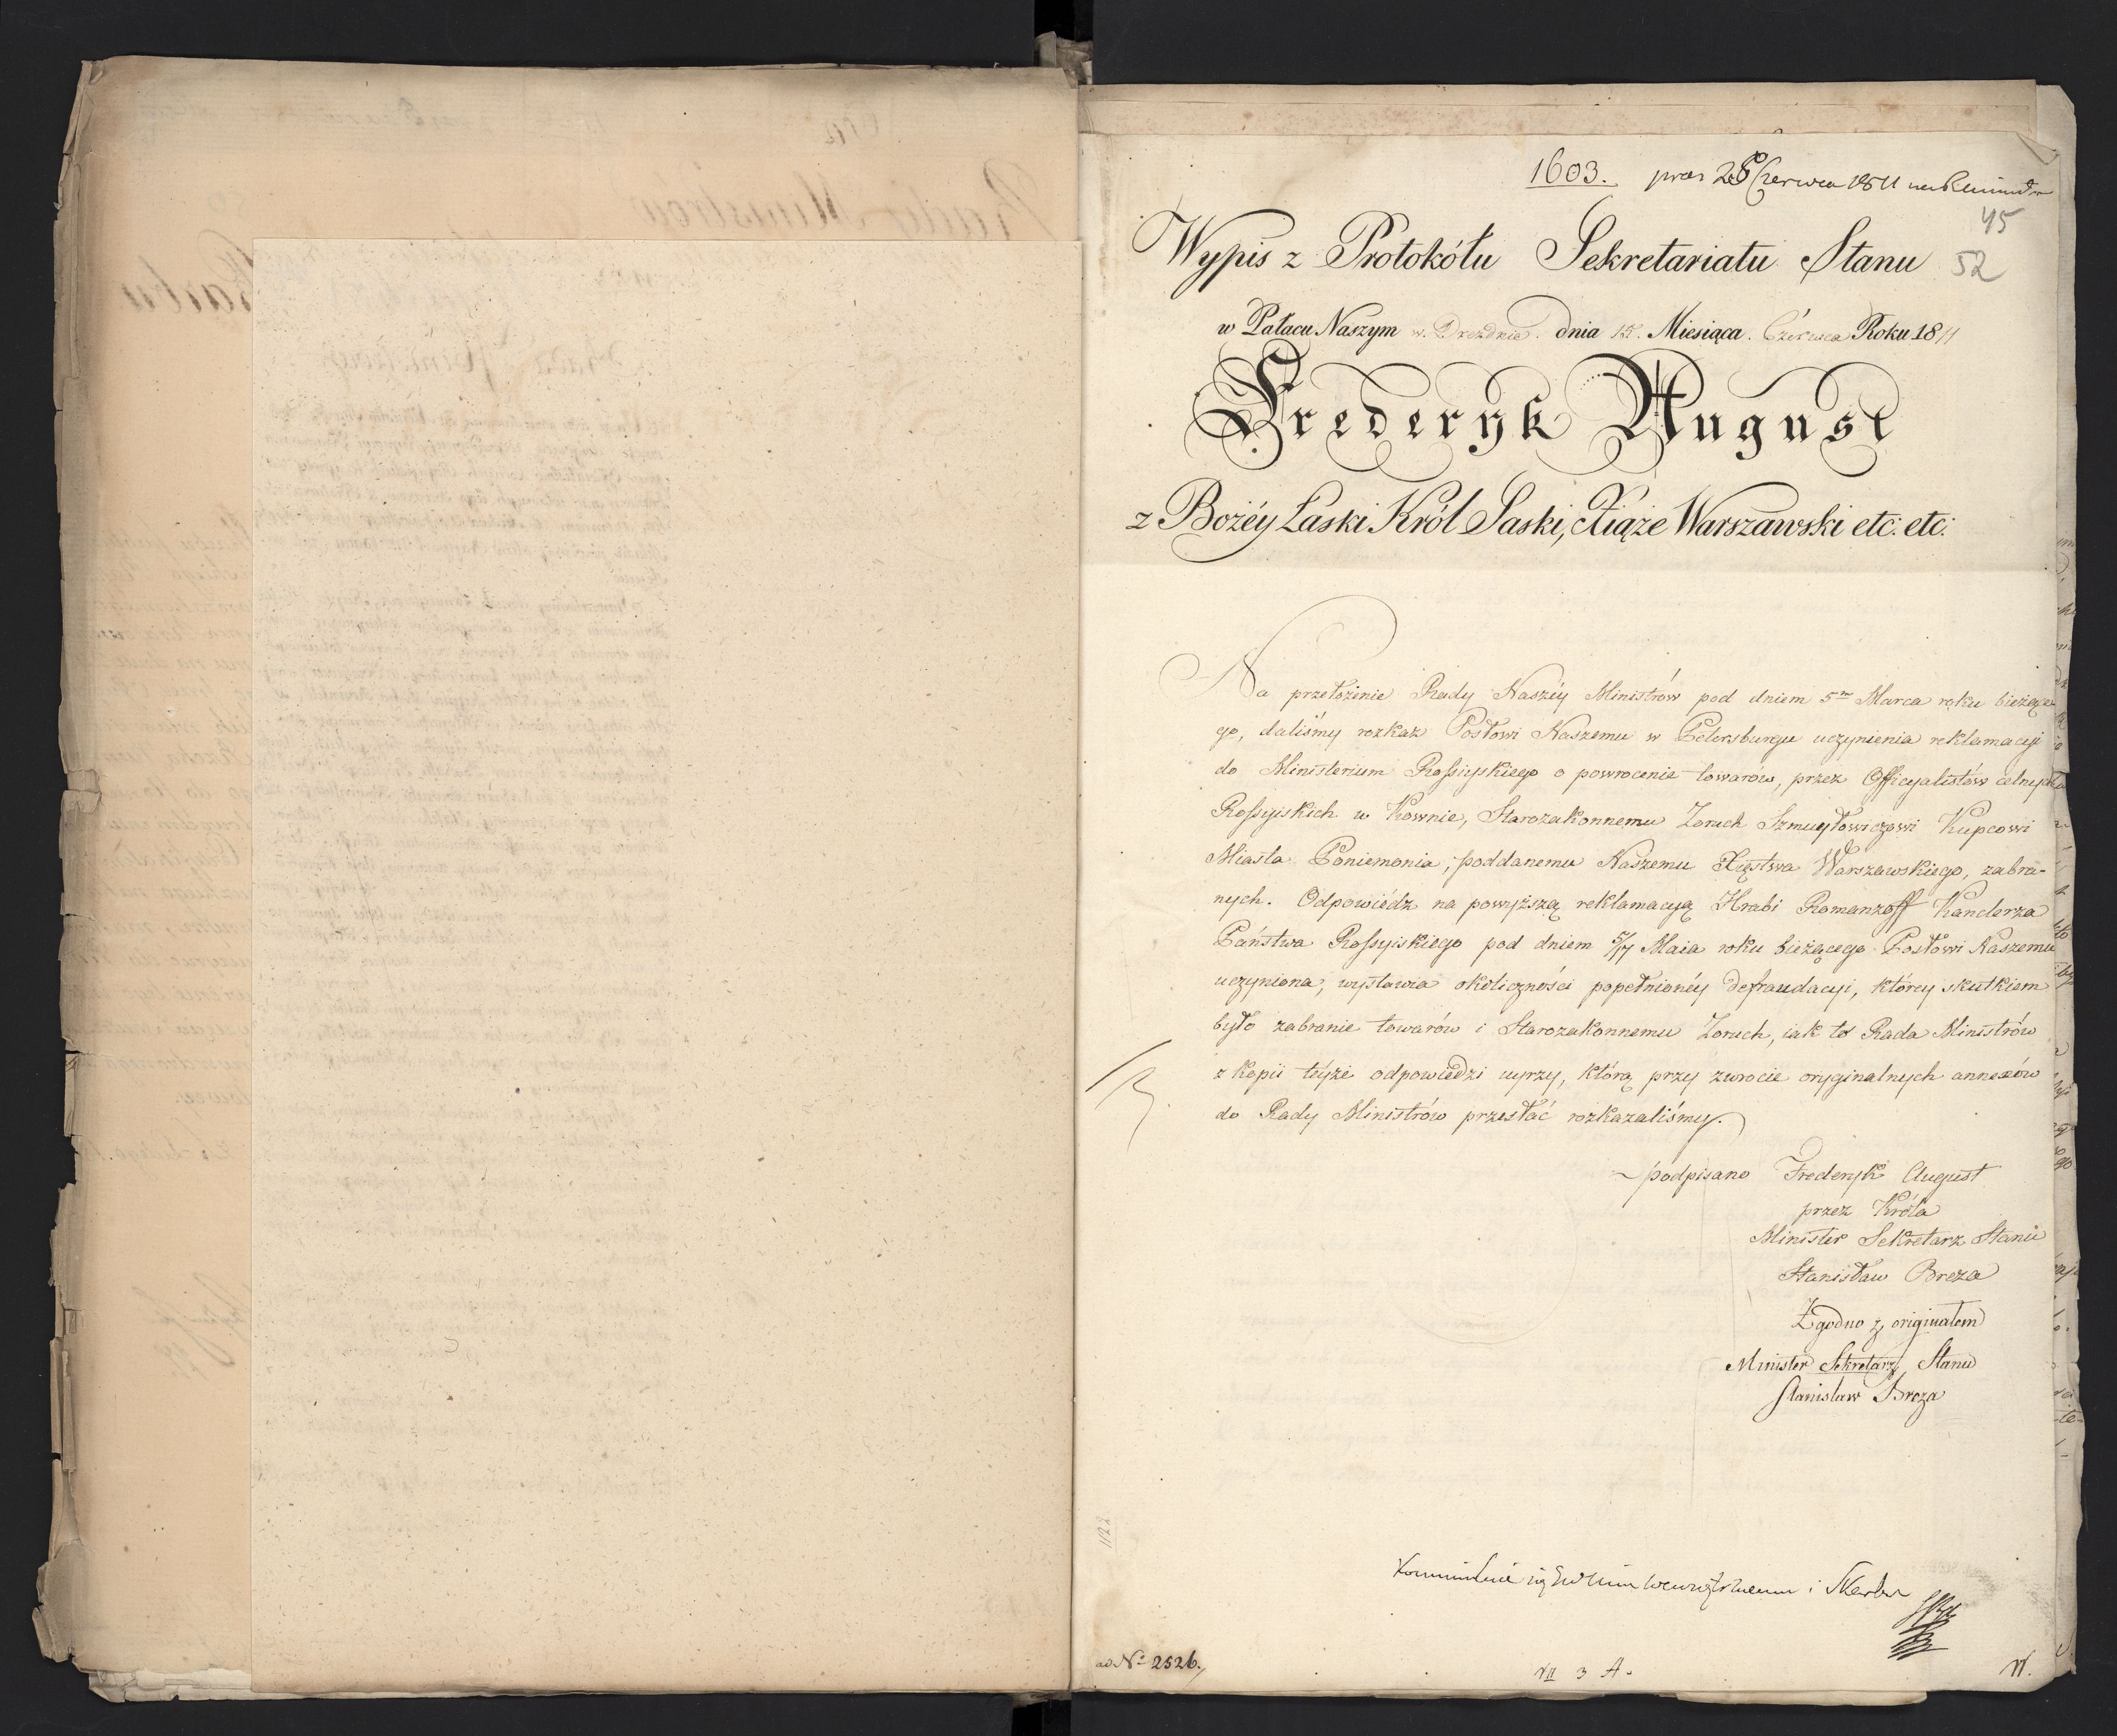 1603. pras 28 Czerwca 1811
45
Wypis z Protokółu Sekretariatu Stanu
52
w Pałacu Naszym w. Dreżdnie. dnia 15. Miesiąca. Czerwca Roku 1811
Frederyk August
z Bożéy Łaski Król Saski, Xiąże Warszawski etc: etc:
Na przełożenie Rady Naszéy Ministrów pod dniem 5m Marca roku bieżące-
go, daliśmy rozkaz Posłowi Naszemu w Petersburgu uczynienia reklamacyi
do Ministerium Rossyiskiego o powrocenie towarów, przez Officyalistów celnych
Rossyiskich w Kownie, Starozakonnemu Zoruch Szmuyłowiczowi Kupcowi
Miasta Poniemonia, poddanemu Naszemu Xięstwa Warszawskiego, zabra-
nych. Odpowiédz na powyższą reklamacyą Hrabi Romanzoff Kanclerza
Państwa Rossyiskiego pod dniem 5/17 Maia roku bieżącego Posłowi Naszemu
uczyniona, wystawia okoliczności popełnionéy defraudacyi, którey skutkiem
było zabranie towarów i Starozakonnemu Zoruch, iak to Rada Ministrów
z kopii téyże odpowiedzi uyrzy, którą przy zwrocie oryginalnych annexów
do Rady Ministrów przesłać rozkazaliśmy.
podpisano Frederyk August
przez Króla
Minister Sekretarz Stanu
Stanisław Breza
Zgodno z originałem
Minister Sekretarz Stanu
Stanisław Breza
1122
i Skarbu
ad No 2526.
VII 3 A.
W.